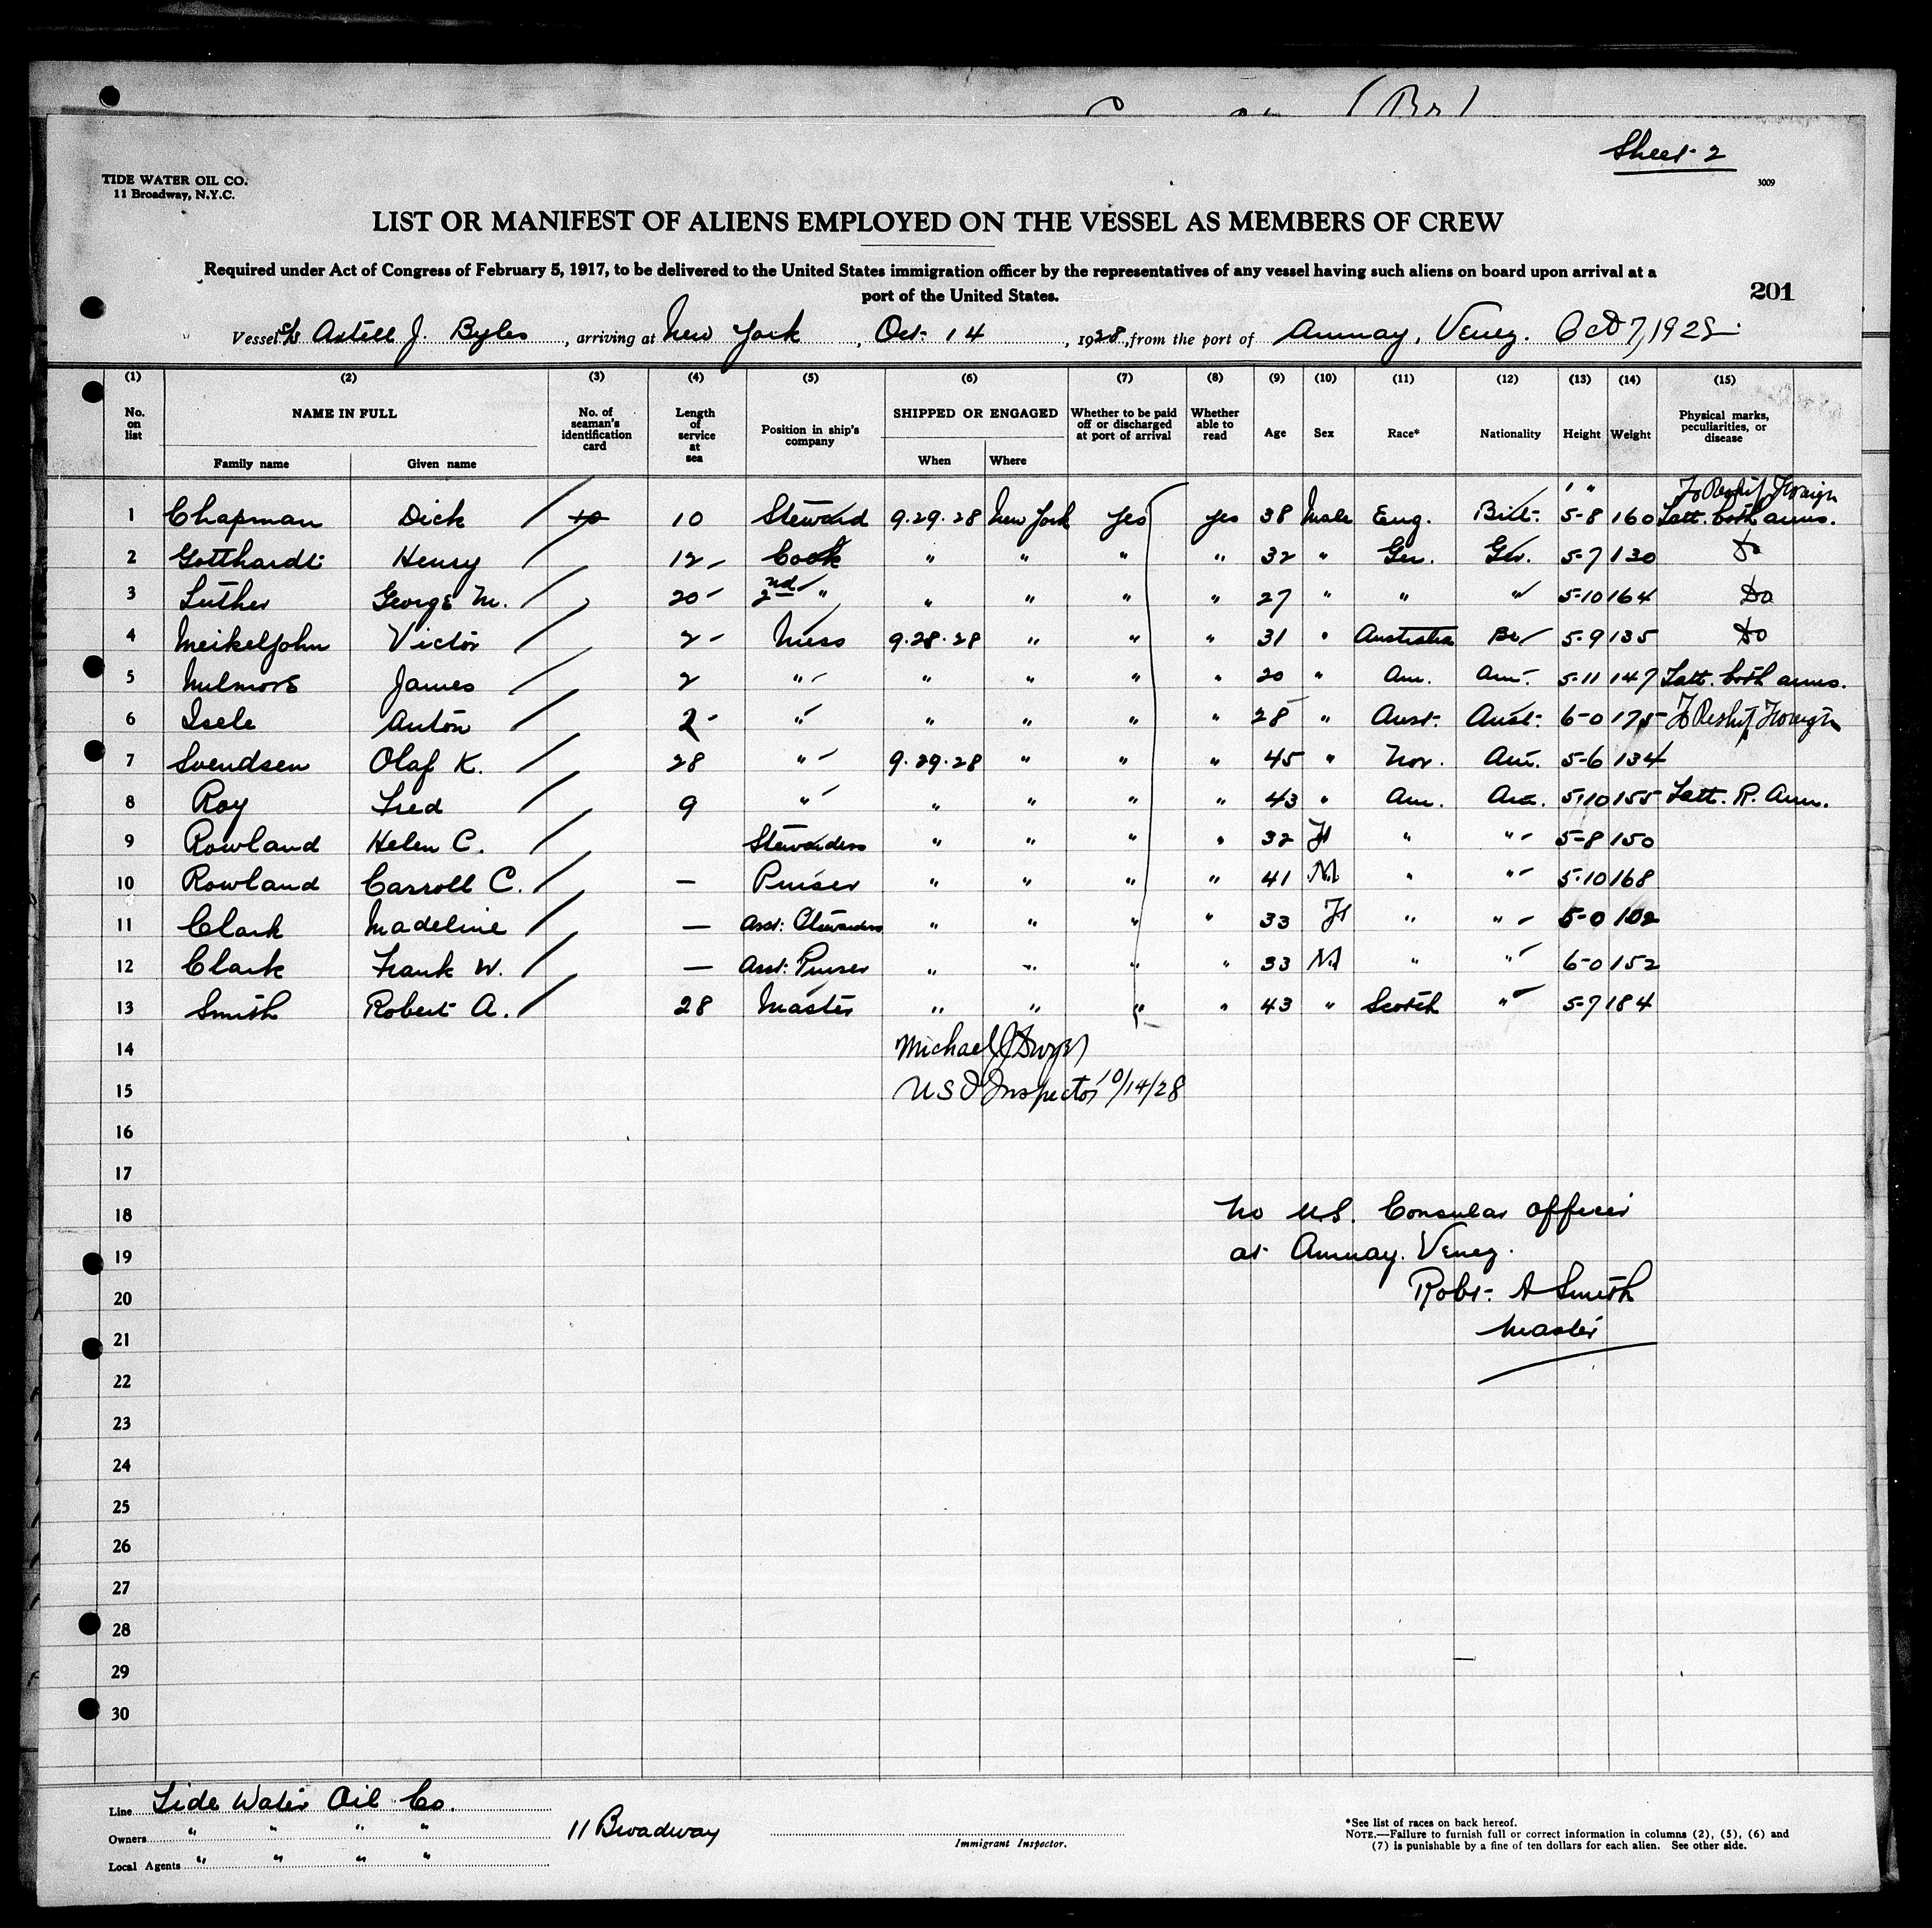 (Br)
Sheet 2
TIDE WATER OIL CO.
11 Broadway, N.Y.C.
3009
LIST OR MANIFEST OF ALIENS EMPLOYED ON THE VESSEL AS MEMBERS OF CREW
Required under Act of Congress of February 5, 1917, to be delivered to the United States immigration officer by the representatives of any vessel having such aliens on board upon arrival at a
port of the United States.
201
Vessel S/S Axtell J. Byles, arriving at New York, Oct. 14, 1928, from the port of Amuay, Venez. Oct 7, 1928
(1) (2) (3) (4) (5) (6) (7) (8) (9) (10) (11) (12) (13) (14) (15)
No. on list NAME IN FULL No. of seaman's identification card Length of service at sea Position in ship's company SHIPPED OR ENGAGED Whether to be paid off or discharged at port of arrival Whether able to read Age Sex Race* Nationality Height Weight Physical marks, peculiarities, or disease
Family name Given name When Where
' "
To Reship Foreign
1 Chapman Dick / 10 10 Steward 9.29.28 New York Yes Yes 38 Male Eng. Brit. 5-8 160 Tatt. both arms.
2 Gotthardt Henry / 12 - Cook " " " " 32 " Ger. Ger. 5-7 130 Do
3 Luther George M. / 20 - 2nd " " " " " 27 " " " 5-10 164 Do
4 Meikeljohn Victor / 2 - Mess 9.28.28 " " " 31 " Australia Br 5-9 135 Do
5 Milmore James / 2 " " " " " 20 " Am. Am. 5-11 147 Tatt. both arms.
6 Isele Anton / 2 - " " " " " 28 " Aust. Aust. 6-0 175 To Reship Foreign
7 Svendsen Olaf K. / 28 " 9.29.28 " " " 45 " Nor. Am. 5-6 134
8 Roy Fred / 9 " " " " " 43 " Am. Am. 5-10 155 Tatt. R. Arm.
9 Rowland Helen C. / Stewardess " " " " 32 F " " 5-8 150
10 Rowland Carroll C. / — Purser " " " " 41 M " " 5-10 168
11 Clark Madeline / — Asst. Stewardess " " " " 33 F " " 5-0 102
12 Clark Frank W. / — Asst. Purser " " " " 33 M " " 6-0 152
13 Smith Robert A. / 28 Master " " " " 43 " Scotch " 5-7 184
14 Michael J Dwyer
15 U S I Inspector 10/14/28
16
17
18 No U.S. Consular officer
19 at Amuay. Venez.
20 Robt. A Smith
21 Master
22
23
24
25
26
27
28
29
30
Line Tide Water Oil Co.
Owners " " " " 11 Broadway
Local Agents " " " "
Immigrant Inspector.
*See list of races on back hereof.
NOTE.—Failure to furnish full or correct information in columns (2), (5), (6) and
(7) is punishable by a fine of ten dollars for each alien. See other side.